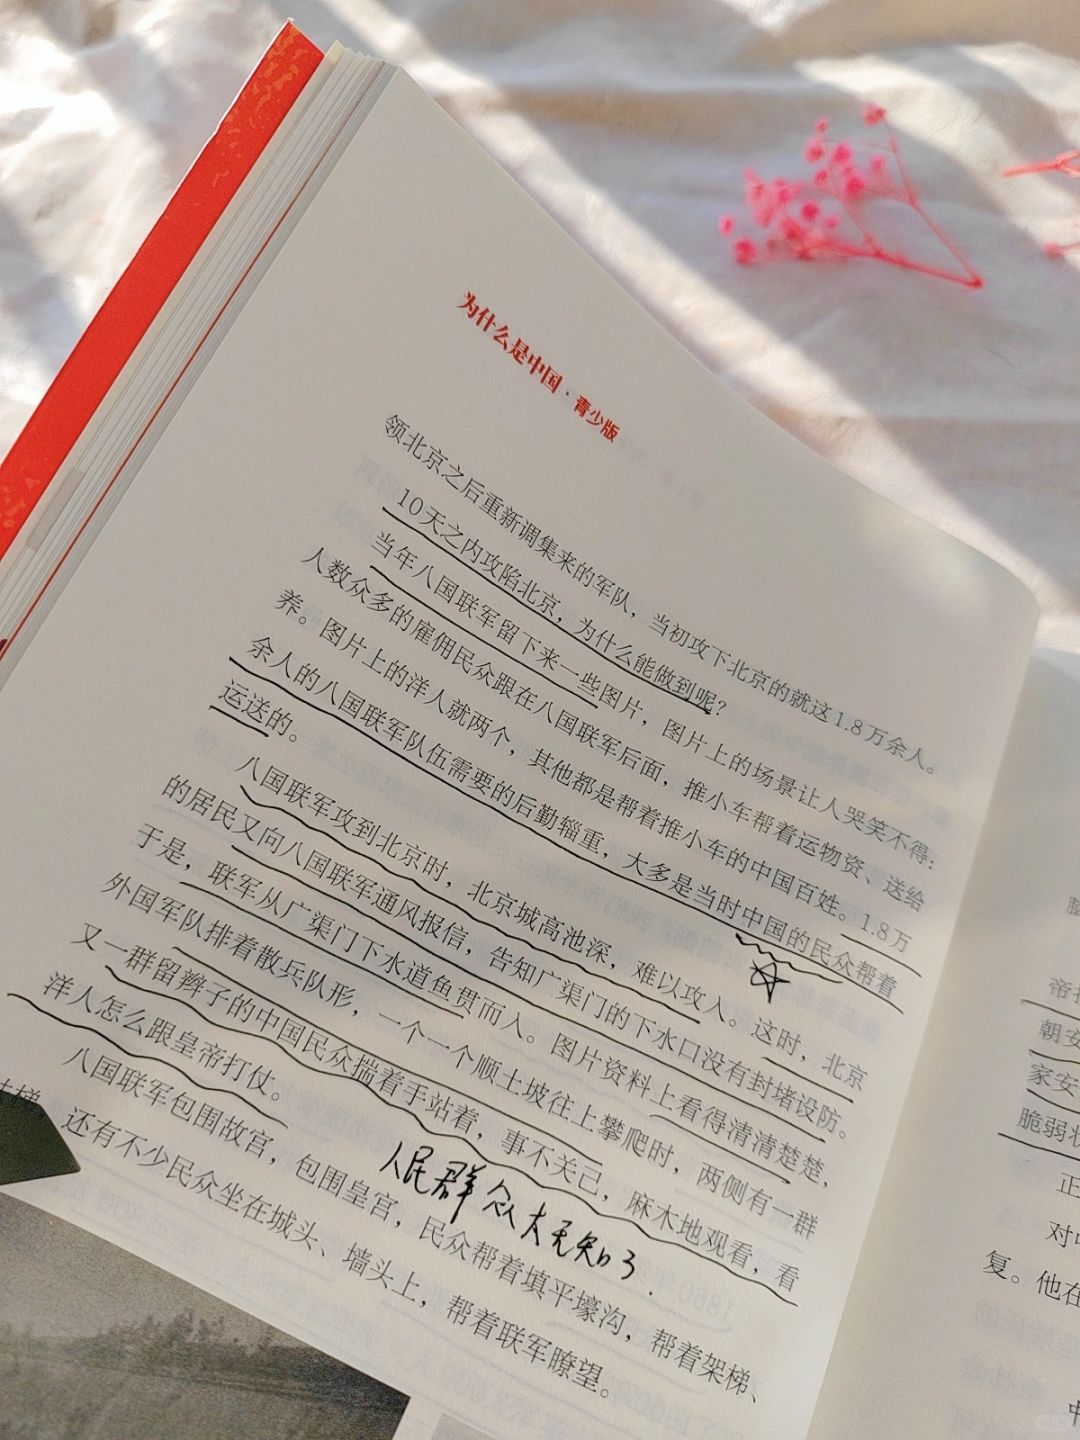 为什么是中国·青少版
领北京之后重新调集来的军队，当初攻下北京的就这1.8万余人。
10天之内攻陷北京，为什么能做到呢？
当年八国联军留下来一些图片，图片上的场景让人哭笑不得：
人数众多的雇佣民众跟在八国联军后面，推小车帮着运物资、送给
养。图片上的洋人就两个，其他都是帮着推小车的中国百姓。1.8万
余人的八国联军队伍需要的后勤辎重，大多是当时中国的民众帮着
运送的。
八国联军攻到北京时，北京城高池深，难以攻入。这时，北京
的居民又向八国联军通风报信，告知广渠门的下水口没有封堵设防。
于是，联军从广渠门下水道鱼贯而入。图片资料上看得清清楚楚，
外国军队排着散兵队形，一个一个顺土坡往上攀爬时，两侧有一群
又一群留辫子的中国民众揣着手站着，事不关己，麻木地观看，看
洋人怎么跟皇帝打仗。
人民群众太无知了.
八国联军包围故宫，包围皇宫，民众帮着填平壕沟，帮着架梯、
还有不少民众坐在城头、墙头上，帮着联军瞭望。
朝安
家安
脆弱状
正
对中
复。他在
中